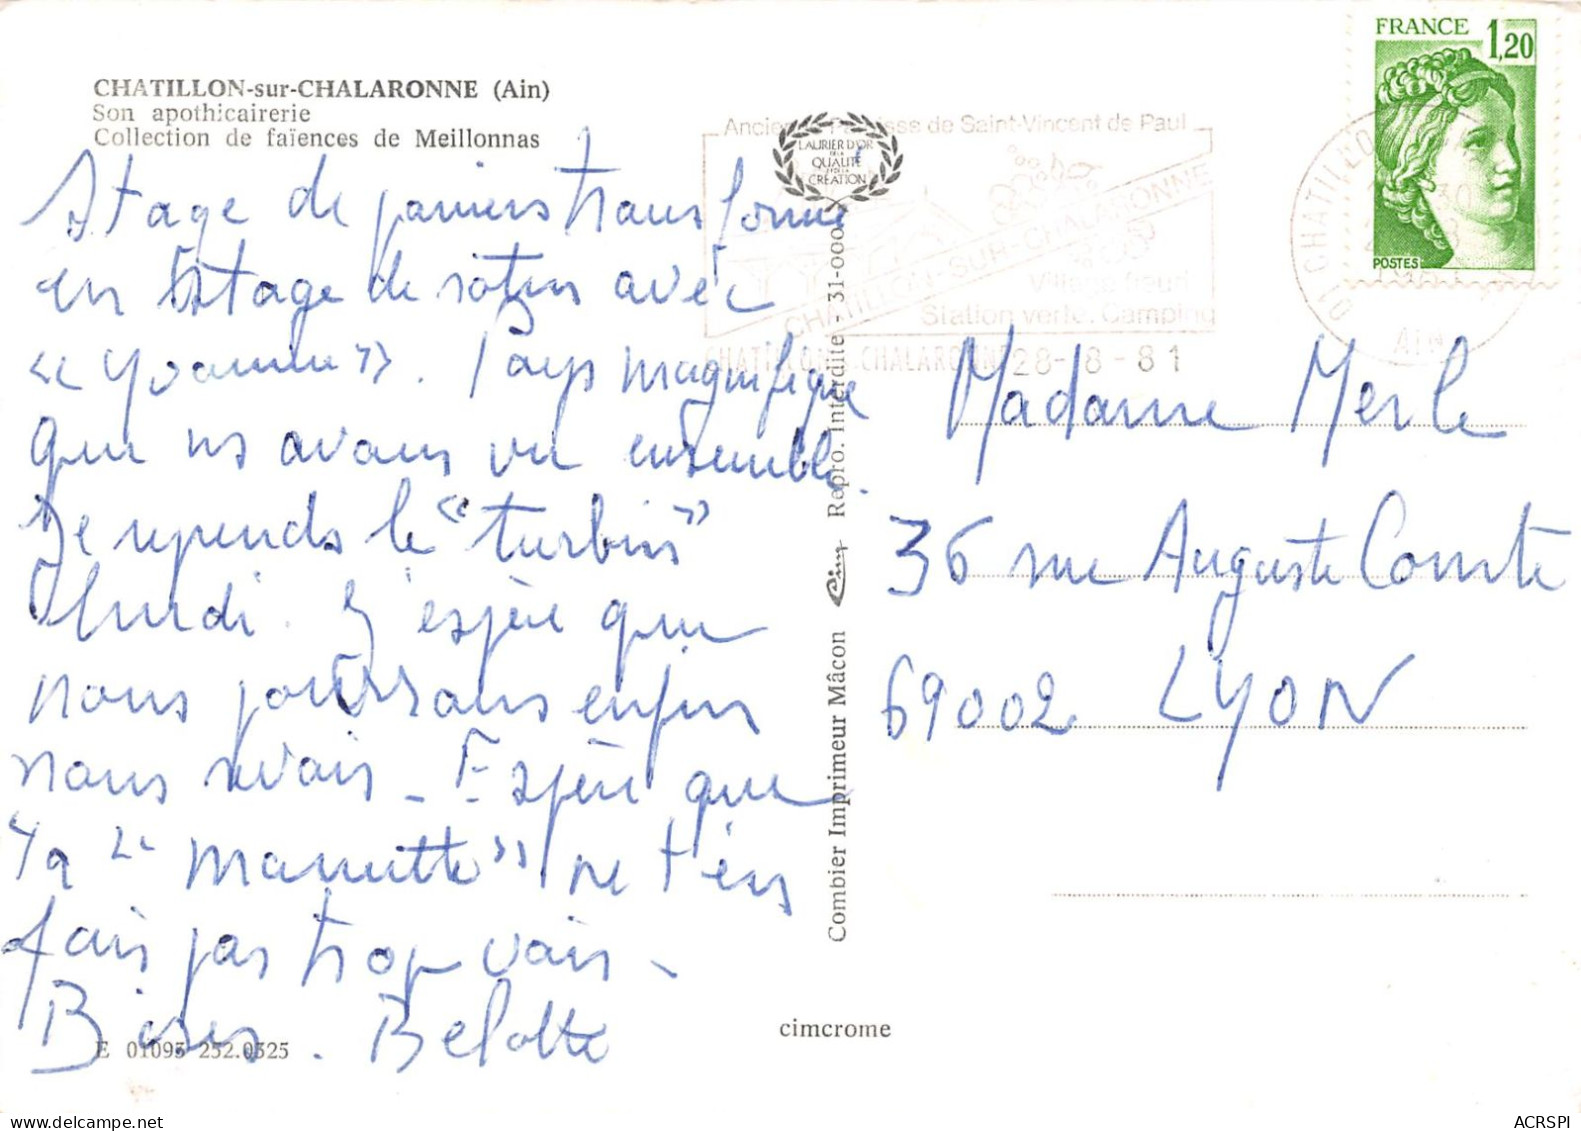 CHATILLON-sur-CHALARONNE (Ain)
Son apothicairerie
Collection de faïences de Meillonnas
Stage de paniers transformé
en Stage de rotin avec
« Yvonne ». Pays magnifique
que ns avons vu ensemble.
Je reprends le "turbin"
lundi. J'espère que
nous pourrons enfin
nous revoir - Espère que
ta " Manette " ne t'en
fais pas trop voir -
Bises. Belotte
E 01093 252.0325
Combier Imprimeur Mâcon Cim Repro. Interdite - 31-000
LAURIER D'OR
DE LA
QUALITÉ
ET DE LA
CRÉATION
cimcrome
Ancienne Paroisse de Saint-Vincent de Paul
CHATILLON-SUR-CHALARONNE
Village fleuri
Station verte. Camping
28-8-81
CHATILLON
AIN
FRANCE 1,20
POSTES
Madame Merle
36 rue Auguste Comte
69002 LYON
ACRSPI